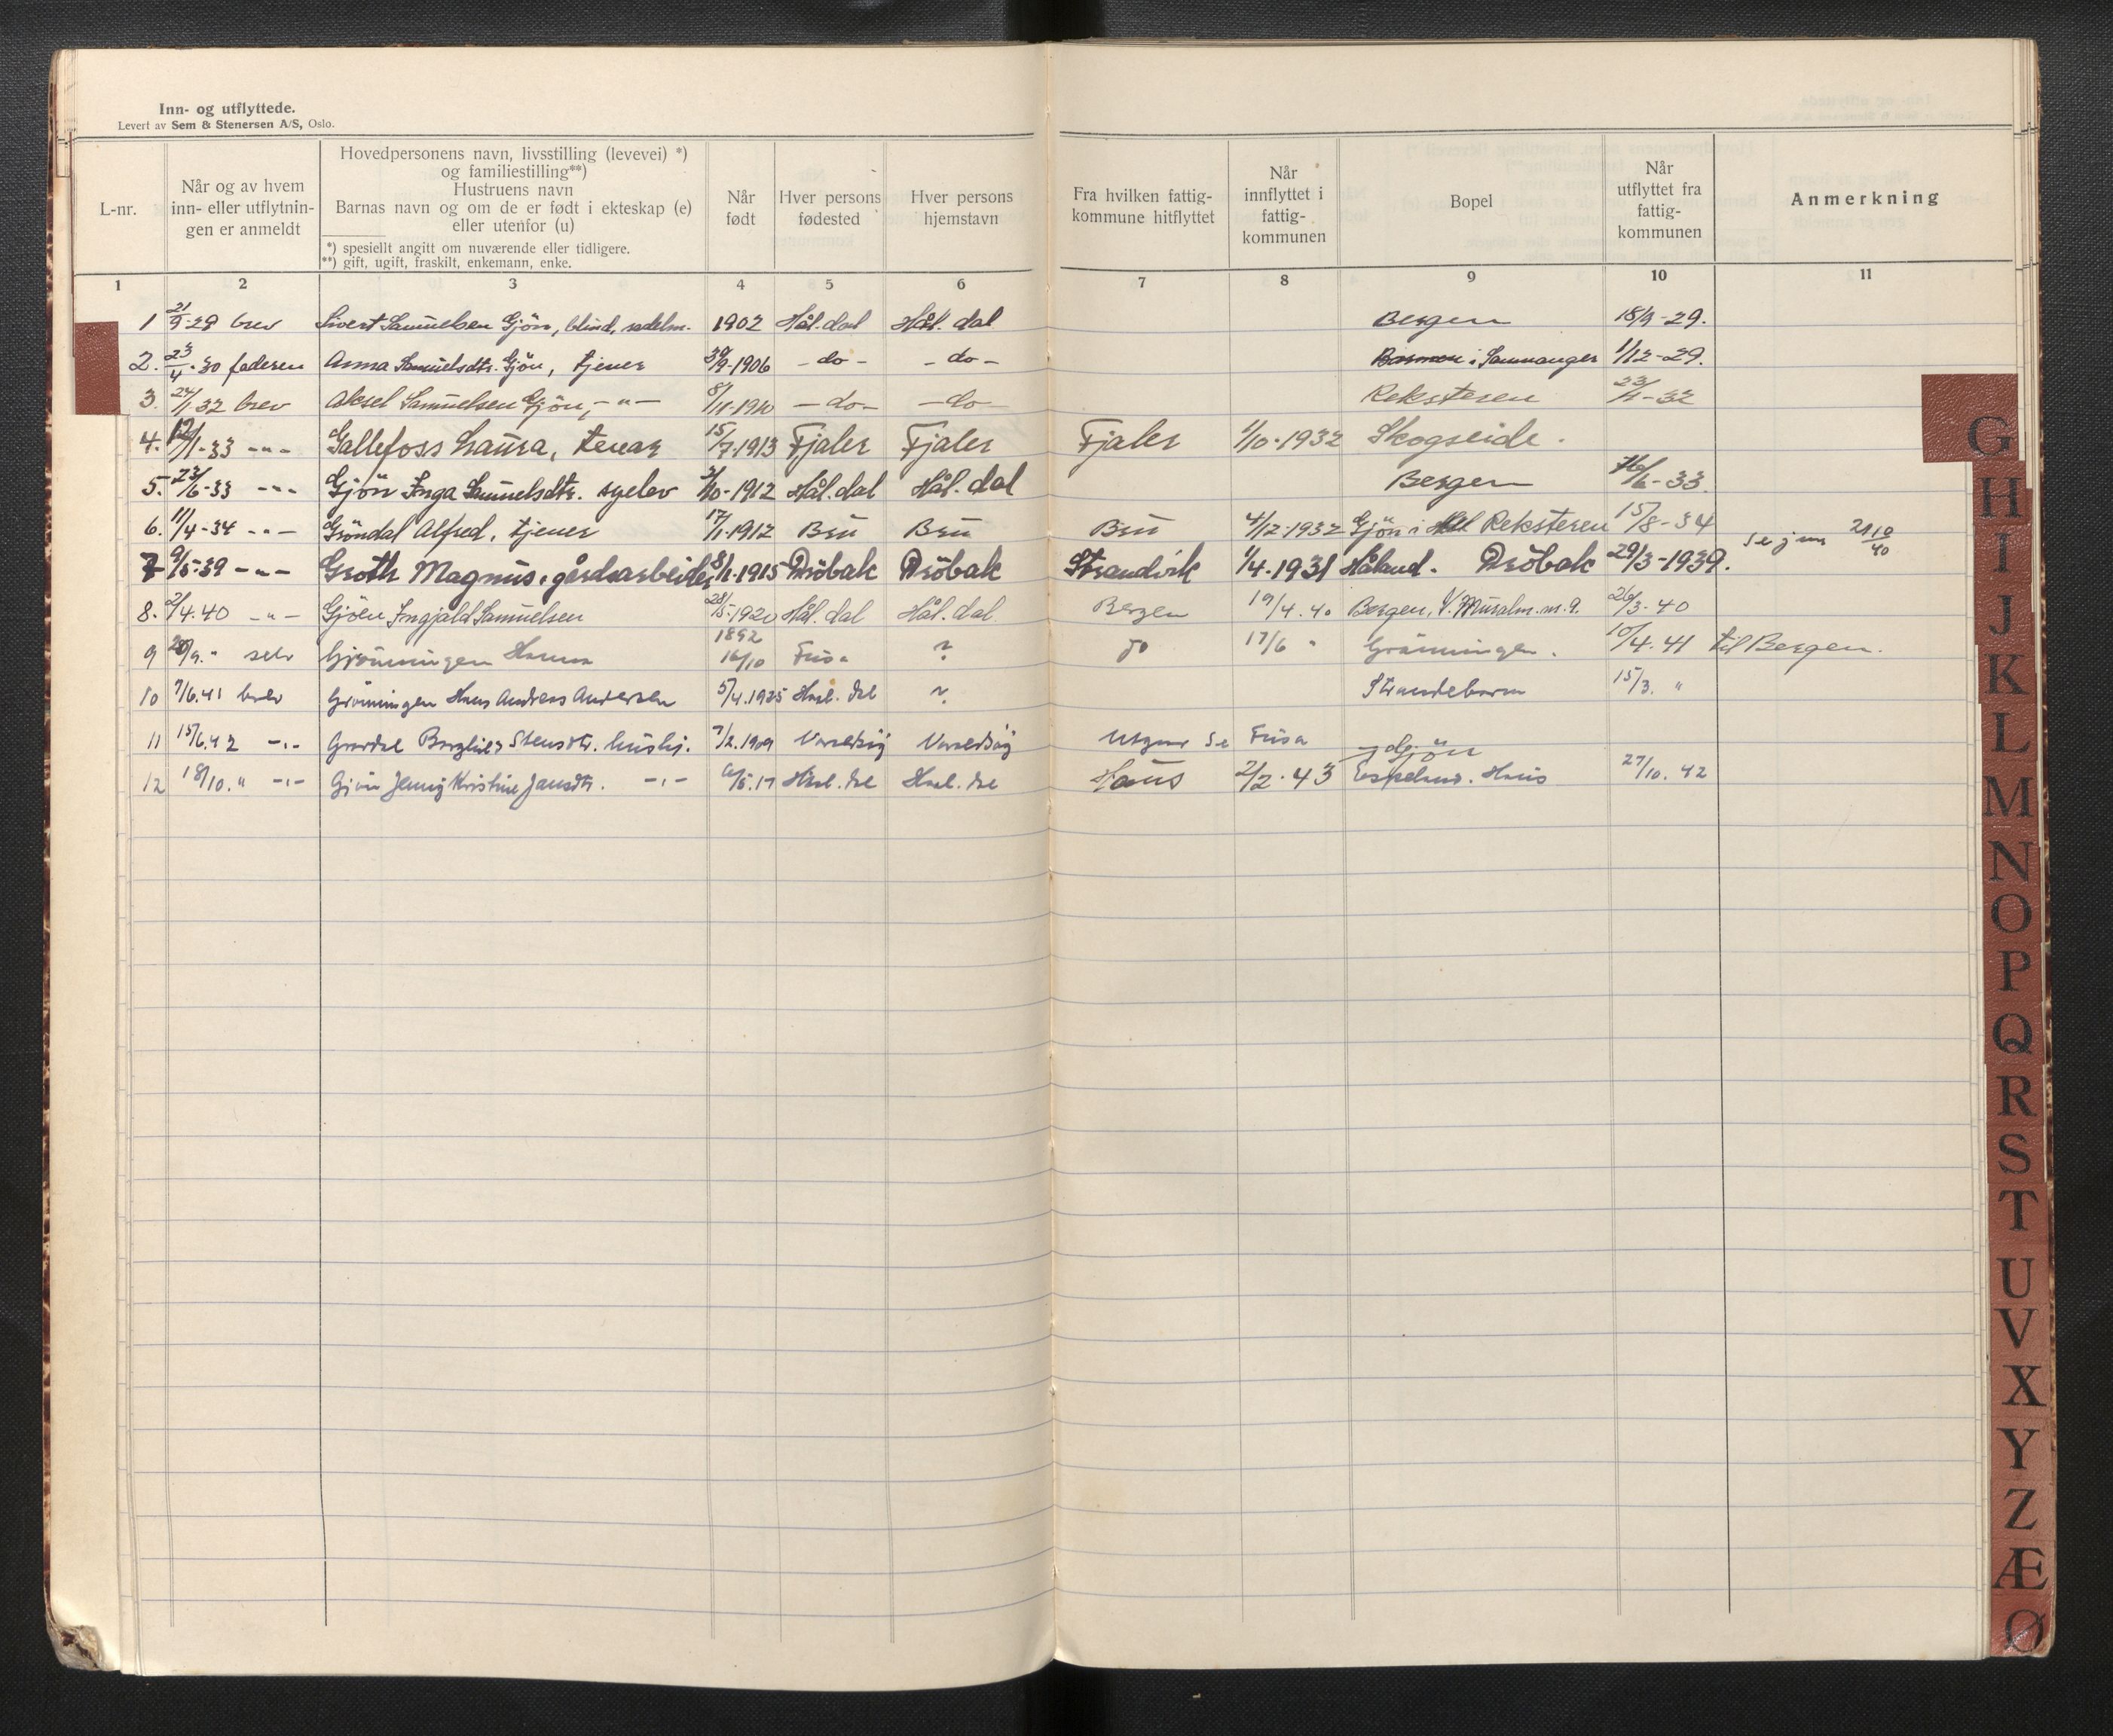 Inn- og utflyttede.
Levert av Sem & Stenersen A/S, Oslo.
L-nr.
Når og av hvem
inn- eller utflytnin-
gen er anmeldt
Hovedpersonens navn, livsstilling (levevei) *)
og familiestilling**)
Hustruens navn
Barnas navn og om de er født i ekteskap (e)
eller utenfor (u)
*) spesiellt angitt om nuværende eller tidligere.
**) gift, ugift, fraskilt, enkemann, enke.
Når
født
Hver persons
fødested
Hver persons
hjemstavn
Fra hvilken fattig-
kommune hitflyttet
Når
innflyttet i
fattig-
kommunen
Bopel
Når
utflyttet fra
fattig-
kommunen
Anmerkning
1 2 3 4 5 6 7 8 9 10 11
1 21/9-29 brev Sivert Samuelsen Gjön, blind, 1902 Hål.dal Hål. dal Bergen 18/9-29.
2. 23/4-30 faderen Anna Samuelsdtr. Gjön, tjener 30/9-1906 -do- -do- i Samnanger 1/12-29.
3. 24/1-32 brev Aksel Samuelsen Gjön, -"- 8/11-1910 -do- -do- Reksteren 23/1-32
4. 12/1-33 -"- Gallefoss Laura, tenar 15/7-1913 Fjaler Fjaler Fjaler 1/10-1932 Skogseide.
5. 23/6-33 -"- Gjön Inga Samuelsdtr. syelev 3/10-1912 Hål.dal Hål.dal Bergen 16/6-33.
6. 11/4-34 -"- Gröndal Alfred, tjener 17/1-1912 Bru Bru Bru 4/12-1932 Gjön i Hål Reksteren 15/8-34
7 9/5-39 -"- Groth Magnus, gårdsarbeider 8/1-1915 Dröbak Dröbak Strandvik 1/4-1931 Håland. Dröbak 29/3-1939. 21 10/40
8. 2/4.40 -"- Gjöen Ingjald Samuelsen 28/5-1920 Hål.dal Hål.dal Bergen 19/4.40 Bergen, 9. 26/3-40
9 20/9." selv Grönningen Hanna 1892 16/10 Fusa ? do 17/6 " Grönningen. 10/4.41 til Bergen.
10 7/6.41 brev Grönningen Hans Andreas Andersen 5/4.1925 Haal.dal ? Strandebarm 15/3. "
11 15/6.42 -"- Borghild Stensdtr. hushj. 7/2.1909 Fusa
12 18/10." -"- Gjön Jenny Kristine Jansdtr. -"- 6/5.17 Haal.dal Haal.dal Haus 2/2.43 Gjön Espeland. Haus 27/10.42
G
H
I
J
K
L
M
N
O
P
Q
R
S
T
U
V
X
Y
Z
Æ
Ø